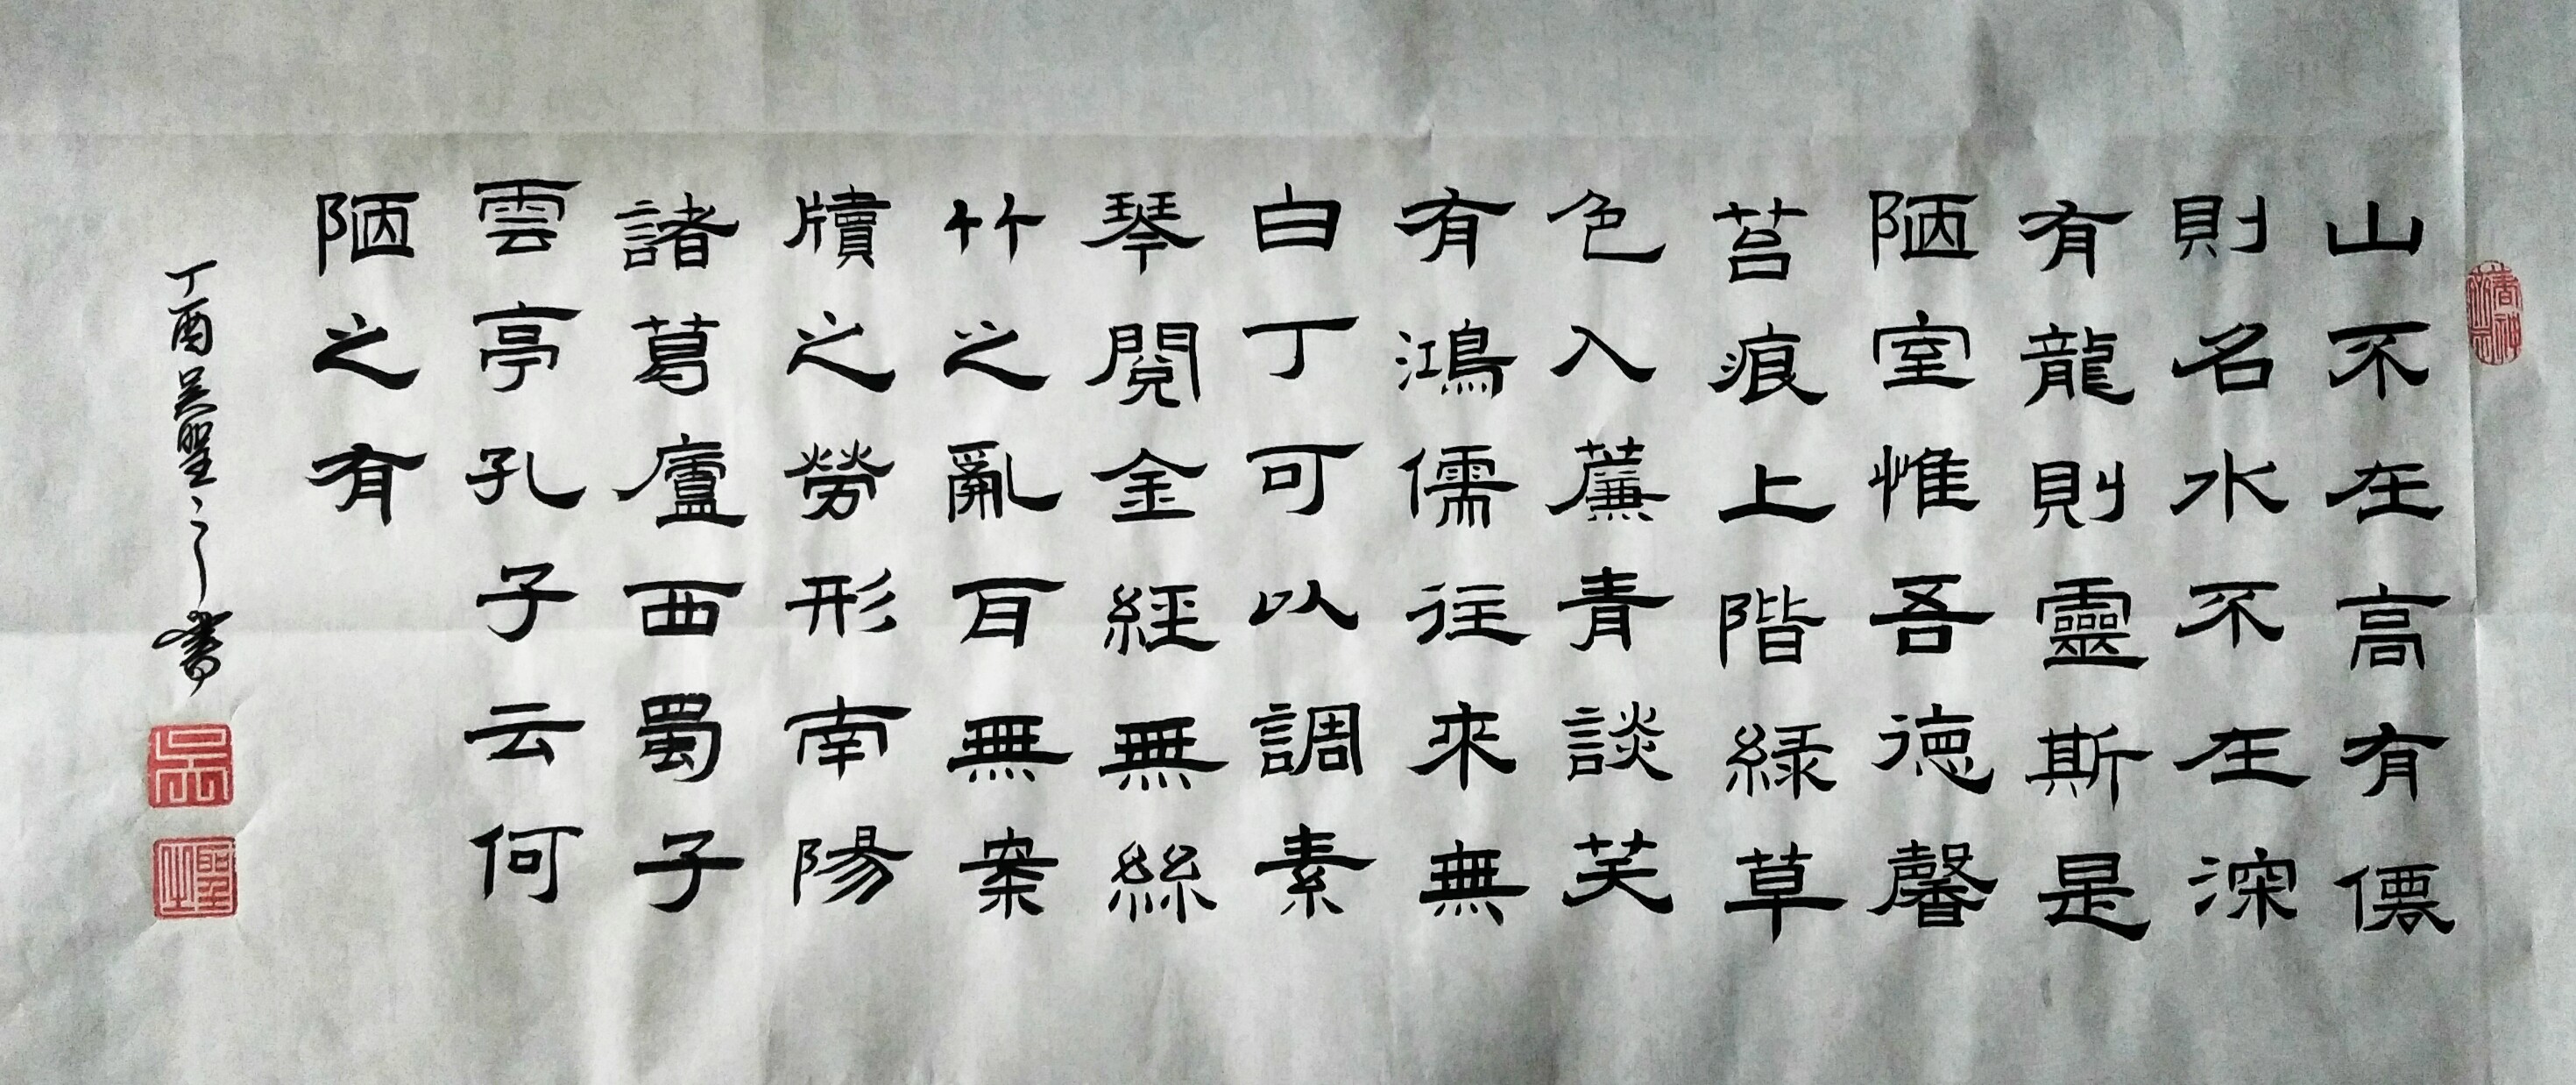 山不在高有僊
則名水不在深
有龍則靈斯是
陋室惟吾德馨
苔痕上階緑草
色入簾青談芺
有鴻儒往來無
白丁可以調素
琴閱金經無絲
竹之亂耳無案
牘之勞形南陽
諸葛廬西蜀子
雲亭孔子云何
陋之有
丁酉吴聖之書
吴
聖之